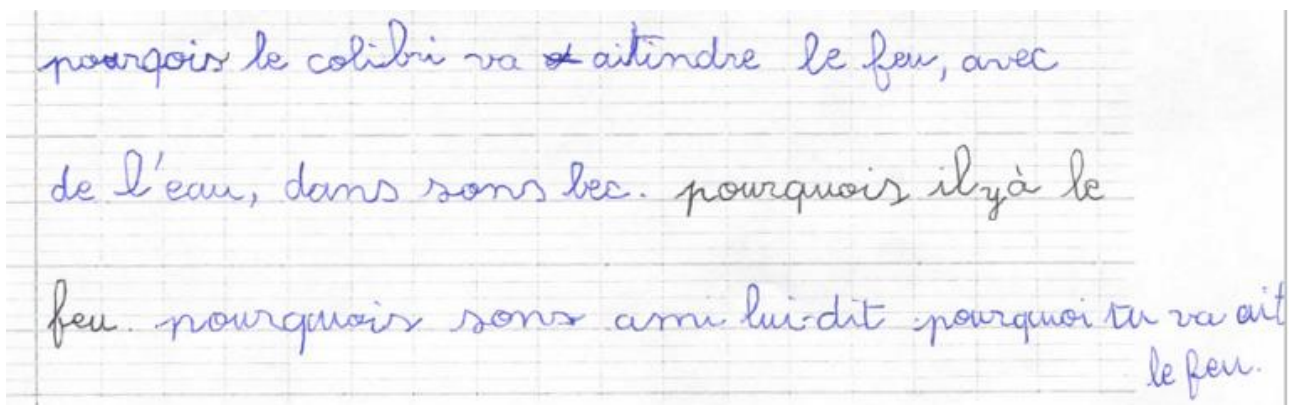 pourqois le colibri va aitindre le feu, avec
de l'eau, dans sons bec. pourquois il y à le
feu. pourquois sons ami lui dit pourquoi tu va ait
le feu.